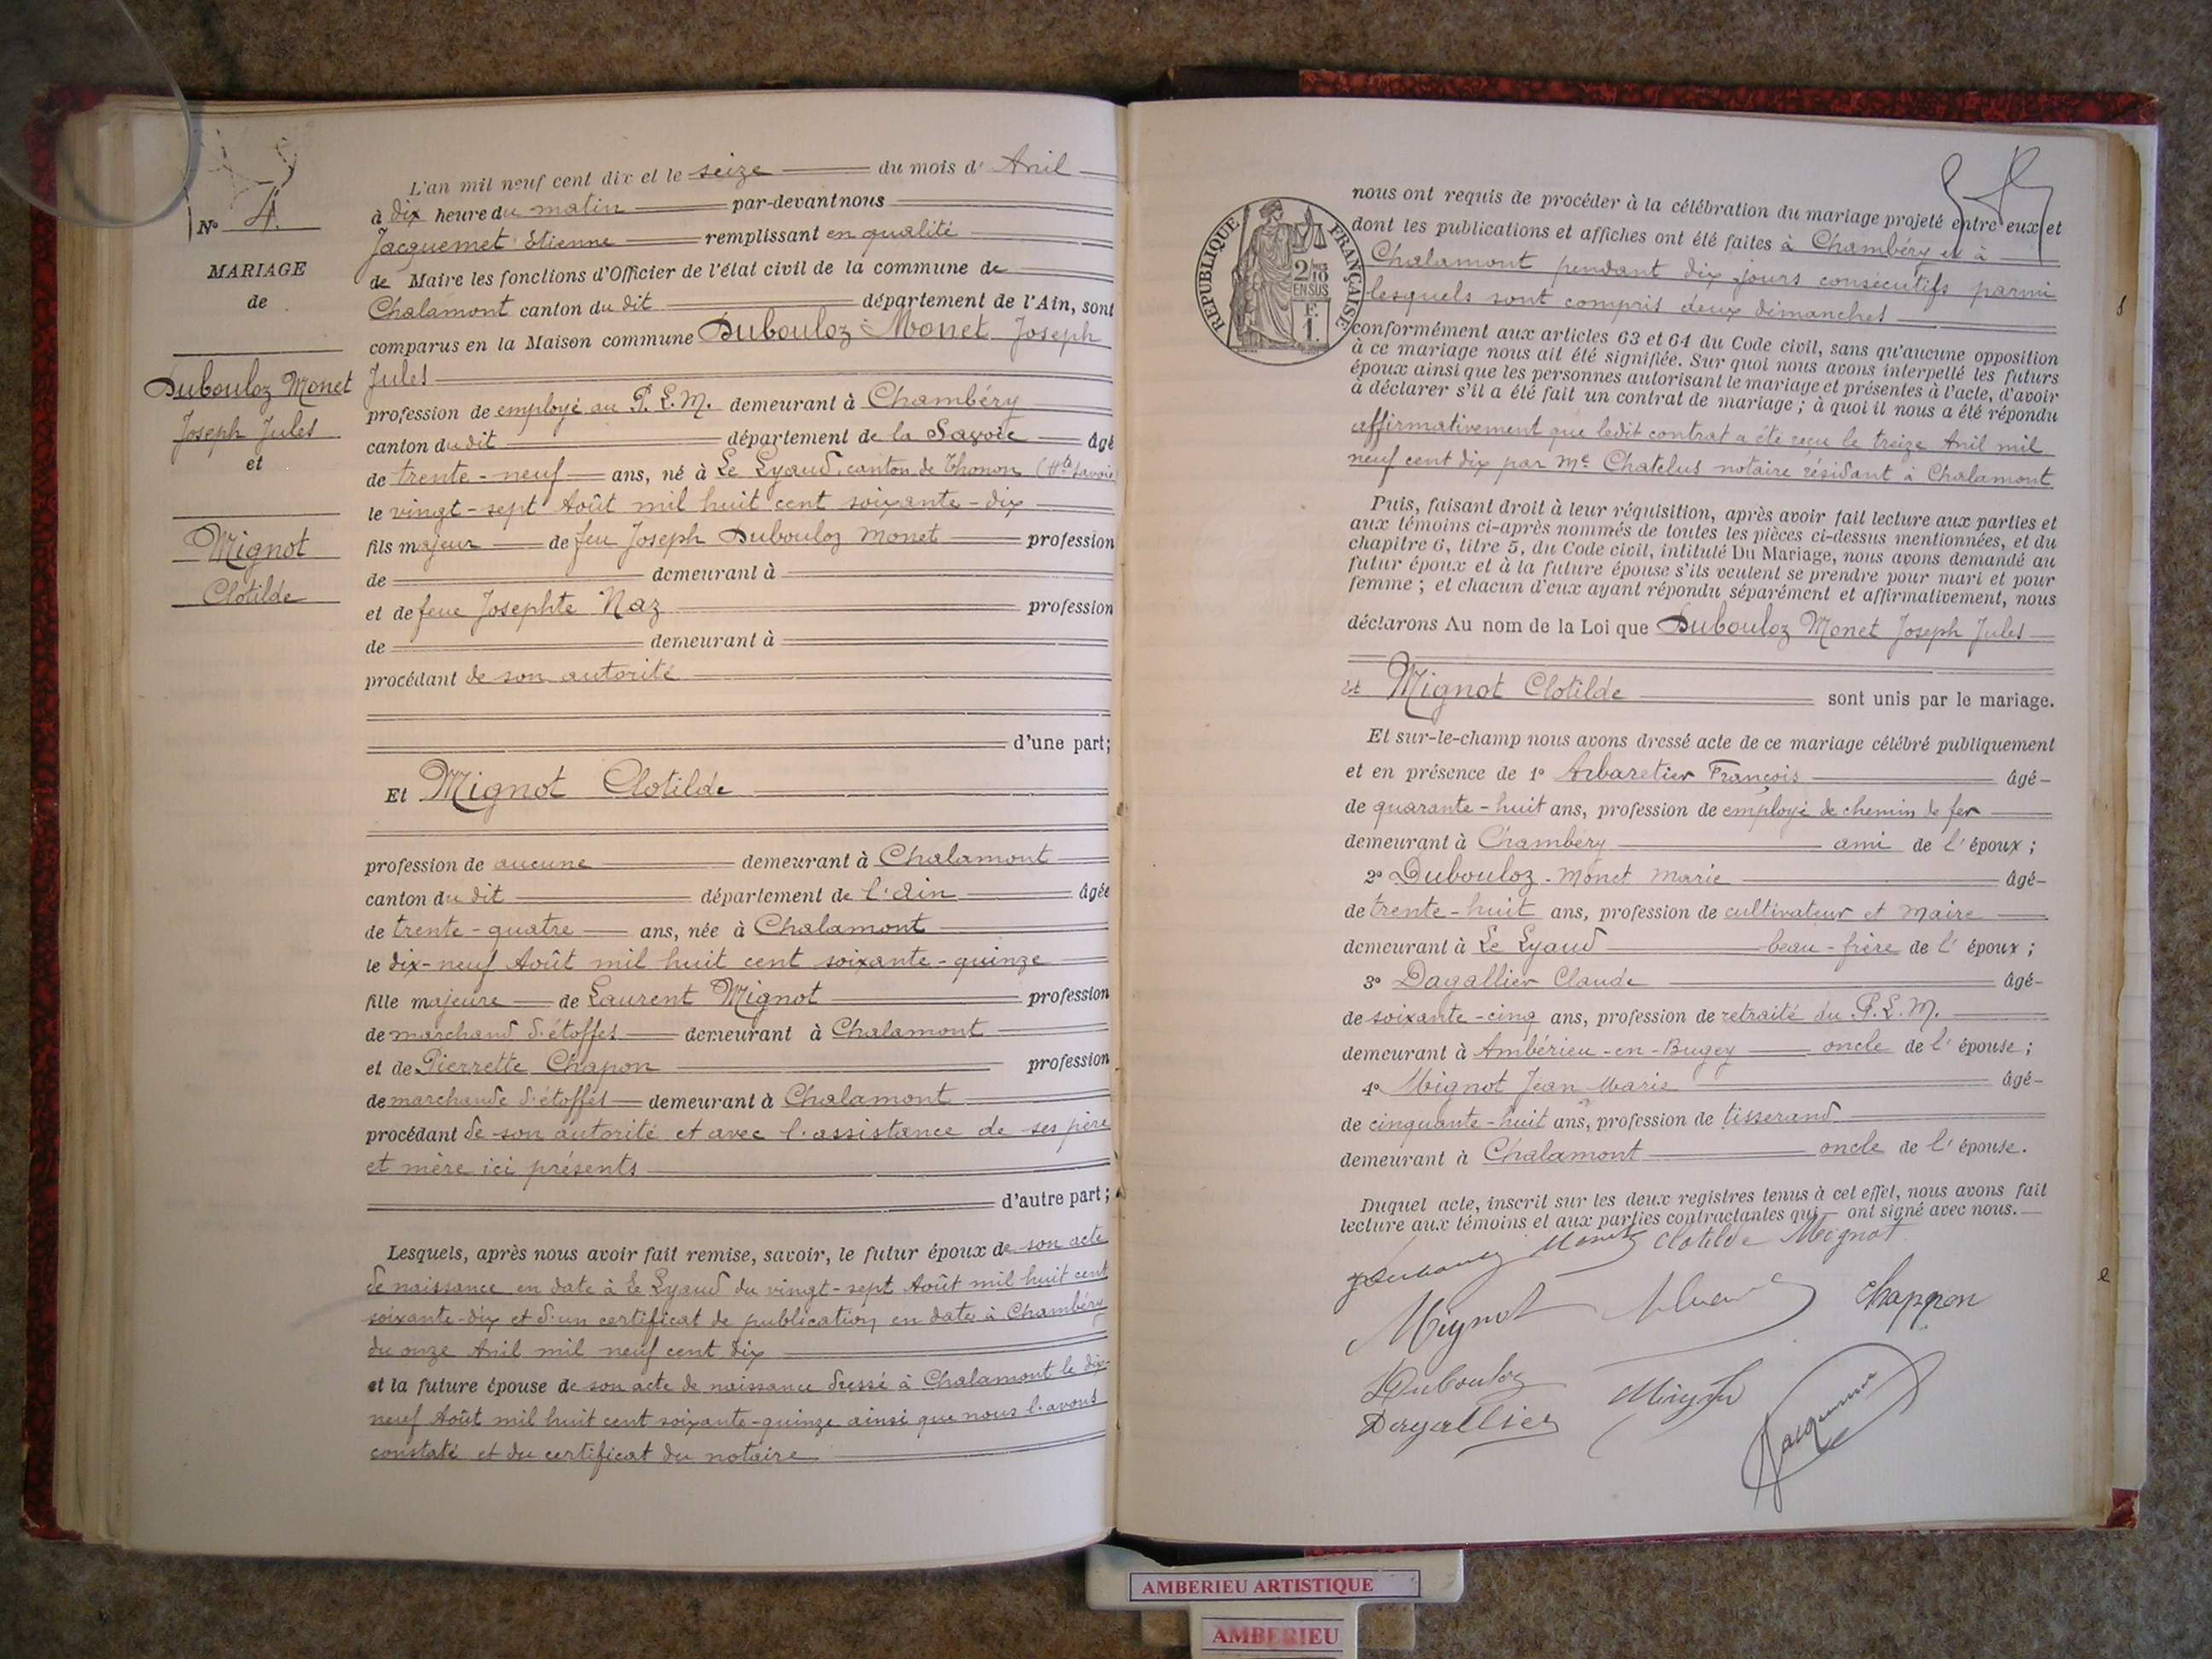 N° 4.
MARIAGE
de
Dubouloz Monet
Joseph Jules
et
Mignot
Clotilde
L'an mil neuf cent dix et le seize du mois d' Avril
à dix heure du matin par-devant nous
Jacquemet Etienne remplissant en qualité
de Maire les fonctions d'Officier de l'état civil de la commune de
Chalamont canton du dit département de l'Ain, sont
comparus en la Maison commune Dubouloz-Monet Joseph
Jules
profession de employé au P.L.M. demeurant à Chambéry
canton du dit département de la Savoie âgé
de trente-neuf ans, né à Le Lyaud, canton de Thonon (Hte Savoie)
le vingt-sept Août mil huit cent soixante-dix
fils majeur de feu Joseph Dubouloz Monet profession
de demeurant à
et de feue Josephte Naz profession
de demeurant à
procédant de son autorité
d'une part;
Et Mignot Clotilde
profession de aucune demeurant à Chalamont
canton du dit département de l'Ain âgée
de trente-quatre ans, née à Chalamont
le dix-neuf Août mil huit cent soixante-quinze
fille majeure de Laurent Mignot profession
de marchand d'étoffes demeurant à Chalamont
et de Pierrette Chapon profession
de marchande d'étoffes demeurant à Chalamont
procédant de son autorité et avec l'assistance de ses père
et mère ici présents
d'autre part;
Lesquels, après nous avoir fait remise, savoir, le futur époux de son acte
de naissance en date à Le Lyaud du vingt-sept Août mil huit cent
soixante-dix et d'un certificat de publication en date à Chambéry
du onze Avril mil neuf cent dix
et la future épouse de son acte de naissance dressé à Chalamont le dix-
neuf Août mil huit cent soixante-quinze ainsi que nous l'avons
constaté et du certificat du notaire
REPUBLIQUE FRANÇAISE
2/10
EN SUS
F.
1.
nous ont requis de procéder à la célébration du mariage projeté entre eux et
dont les publications et affiches ont été faites à Chambéry et à
Chalamont pendant dix jours consécutifs parmi
lesquels sont compris deux dimanches
conformément aux articles 63 et 64 du Code civil, sans qu'aucune opposition
à ce mariage nous ait été signifiée. Sur quoi nous avons interpellé les futurs
époux ainsi que les personnes autorisant le mariage et présentes à l'acte, d'avoir
à déclarer s'il a été fait un contrat de mariage; à quoi il nous a été répondu
affirmativement que ledit contrat a été reçu le treize Avril mil
neuf cent dix par Me Chatelus notaire résidant à Chalamont
Puis, faisant droit à leur réquisition, après avoir fait lecture aux parties et
aux témoins ci-après nommés de toutes les pièces ci-dessus mentionnées, et du
chapitre 6, titre 5, du Code civil, intitulé Du Mariage, nous avons demandé au
futur époux et à la future épouse s'ils veulent se prendre pour mari et pour
femme; et chacun d'eux ayant répondu séparément et affirmativement, nous
déclarons Au nom de la Loi que Dubouloz Monet Joseph Jules
et Mignot Clotilde sont unis par le mariage.
Et sur-le-champ nous avons dressé acte de ce mariage célébré publiquement
et en présence de 1° Arbaretier François âgé
de quarante-huit ans, profession de employé de chemin de fer
demeurant à Chambéry ami de l'époux;
2° Dubouloz-Monet Marie âgé
de trente-huit ans, profession de cultivateur et Maire
demeurant à Le Lyaud beau-frère de l'époux;
3° Dagallier Claude âgé
de soixante-cinq ans, profession de retraité du P.L.M.
demeurant à Ambérieu-en-Bugey oncle de l'épouse;
4° Mignot Jean Marie âgé
de cinquante-huit ans, profession de tisserand
demeurant à Chalamont oncle de l'épouse.
Duquel acte, inscrit sur les deux registres tenus à cet effet, nous avons fait
lecture aux témoins et aux parties contractantes qui ont signé avec nous.
Clotilde Mignot
Mignot Chappon
Dubouloz
Dagallier Jacquemet
AMBERIEU ARTISTIQUE
AMBERIEU